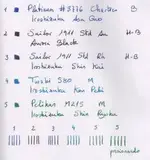 1 Platinum #3776 Century B
Iroshizuku Asa Gao
2 Sailor 1911 Std H-B
Aurora Black
3 Sailor 1911 Std H-B
Iroshizuku Shin Kai
4 Twsbi 580 M
Iroshizuku Fuyu
5 Pelikan M215 M
Iroshizuku Shin Ryoku
1 2 3 4 5